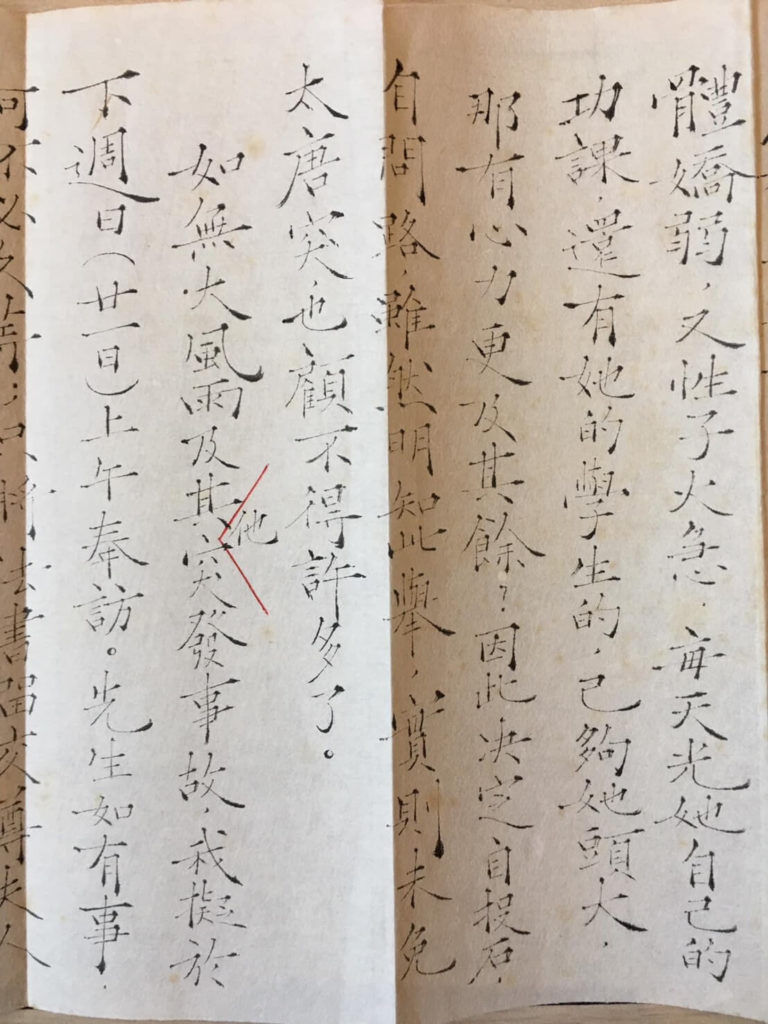 體嬌弱，又性子火急，每天光她自己的
功課，還有她的學生的，已夠她頭大，
那有心力更及其餘？因此決定自投石，
自問路，雖然明知此舉，實則未免
太唐突，也顧不得許多了。
如無大風雨及其他突發事故，我擬於
下週日（廿一日）上午奉訪。先生如有事，
可不必久；只將法書留交尊夫人